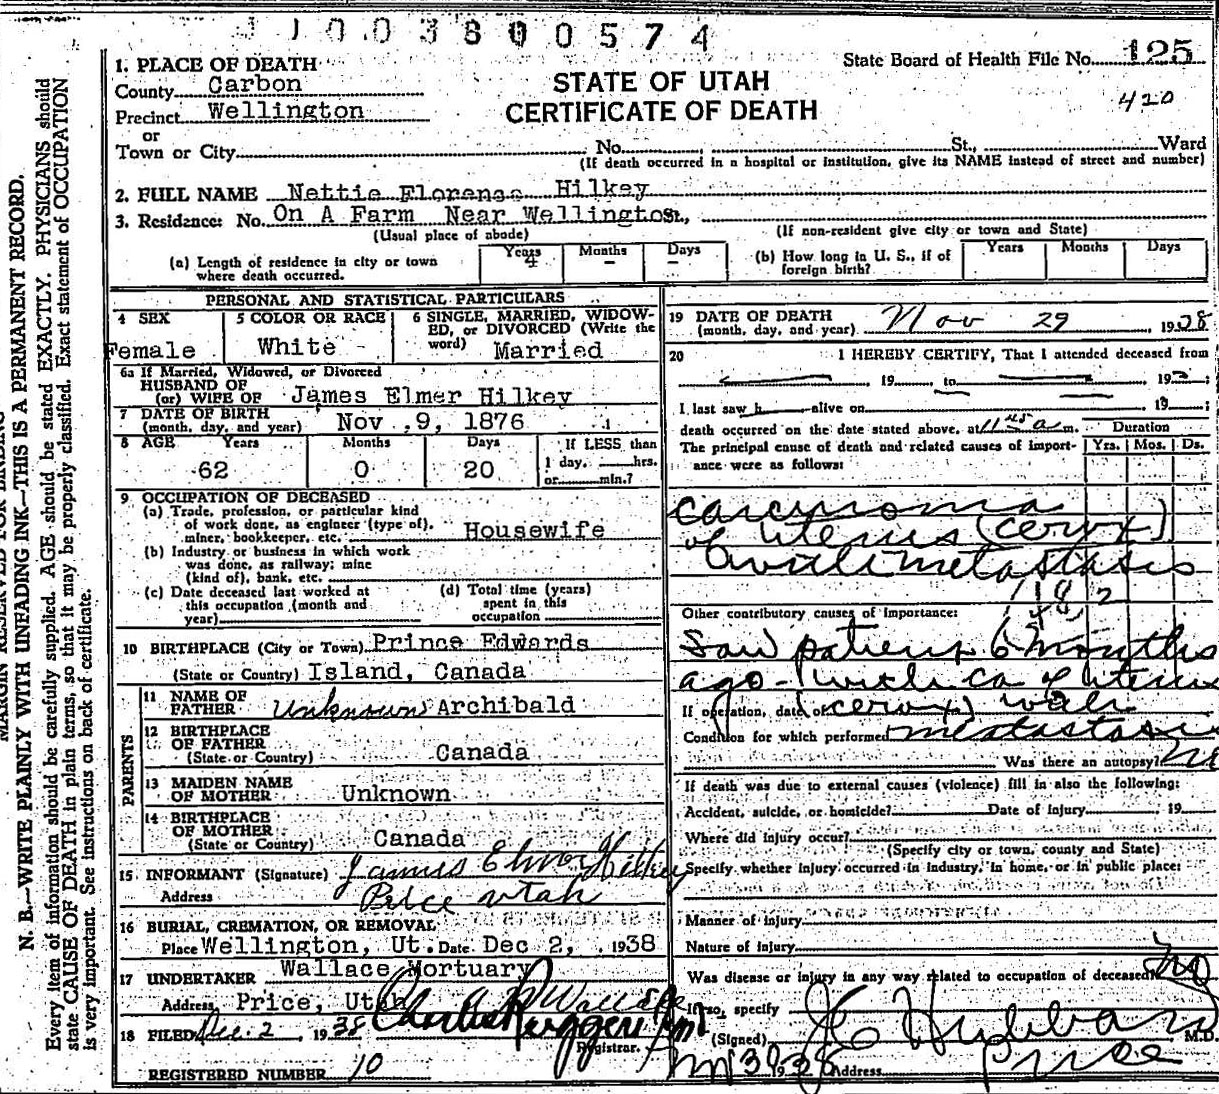 1003800574
State Board of Health File No. 125
420
STATE OF UTAH
CERTIFICATE OF DEATH
1. PLACE OF DEATH
County Carbon
Precinct Wellington
or
Town or City No. St., Ward
(If death occurred in a hospital or institution, give its NAME instead of street and number)
2. FULL NAME Nettie Florense Hilkey
3. Residence: No. On A Farm Near Wellington St.,
(Usual place of abode) (If non-resident give city or town and State)
(a) Length of residence in city or town where death occurred. Years 4 Months - Days -
(b) How long in U. S., if of foreign birth? Years Months Days
PERSONAL AND STATISTICAL PARTICULARS
4 SEX Female
5 COLOR OR RACE White
6 SINGLE, MARRIED, WIDOWED, or DIVORCED (Write the word) Married
6a If Married, Widowed, or Divorced
HUSBAND OF
(or) WIFE OF James Elmer Hilkey
7 DATE OF BIRTH
(month, day, and year) Nov. 9, 1876
8 AGE Years 62 Months 0 Days 20 If LESS than 1 day, hrs. or min.?
9 OCCUPATION OF DECEASED
(a) Trade, profession, or particular kind
of work done, as engineer (type of),
miner, bookkeeper, etc. Housewife
(b) Industry or business in which work
was done, as railway; mine
(kind of), bank, etc.
(c) Date deceased last worked at
this occupation (month and
year)
(d) Total time (years)
spent in this
occupation
10 BIRTHPLACE (City or Town) Prince Edwards
(State or Country) Island, Canada
PARENTS
11 NAME OF
FATHER Unknown Archibald
12 BIRTHPLACE
OF FATHER
(State or Country) Canada
13 MAIDEN NAME
OF MOTHER Unknown
14 BIRTHPLACE
OF MOTHER
(State or Country) Canada
15 INFORMANT (Signature) James Elmer Hilkey
Address Price Utah
16 BURIAL, CREMATION, OR REMOVAL
Place Wellington, Ut. Date Dec 2, 1938
17 UNDERTAKER Wallace Mortuary
Address Price, Utah
18 FILED Dec. 2, 1938
Registrar.
REGISTERED NUMBER 10
19 DATE OF DEATH
(month, day, and year) Nov 29 1938
20 I HEREBY CERTIFY, That I attended deceased from
19 , to , 19 ;
I last saw h alive on 19 ;
death occurred on the date stated above, at 1 45 a m.
Duration
The principal cause of death and related causes of importance were as follows: Yrs. Mos. Ds.
carcinoma
of uterus (cervx)
with metastasis
48 2
Other contributory causes of importance:
Saw patient 6 months
ago - with ca of uterus
If operation, date of (cervx) with
Condition for which performed metastasis
Was there an autopsy? no
If death was due to external causes (violence) fill in also the following:
Accident, suicide, or homicide? Date of injury 19
Where did injury occur?
(Specify city or town, county and State)
Specify whether injury occurred in industry, in home, or in public place:
Manner of injury
Nature of injury
Was disease or injury in any way related to occupation of deceased? no
If so, specify
(Signed) J C Hubbard M.D.
1938 Address Price
MARGIN RESERVED FOR BINDING
N. B.—WRITE PLAINLY WITH UNFADING INK—THIS IS A PERMANENT RECORD.
Every item of information should be carefully supplied. AGE should be stated EXACTLY. PHYSICIANS should
state CAUSE OF DEATH in plain terms, so that it may be properly classified. Exact statement of OCCUPATION
is very important. See instructions on back of certificate.